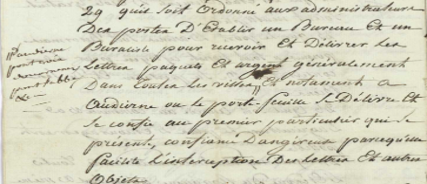 29 qu'il soit ordonné aux administrateurs
Des postes D'Etablir un Bureau Et un
Buraliste pour recevoir Et Délivrer Les
Lettres paquets Et argent généralement
Dans toutes Les villes Et notament a
audierne ou le porte-feuille se Délivre Et
se confie au premier particulier qui se
present, confiance Dangereuse parcequ'elle
facilite L'interception Des Lettres Et autres
Objets
audierne
pont